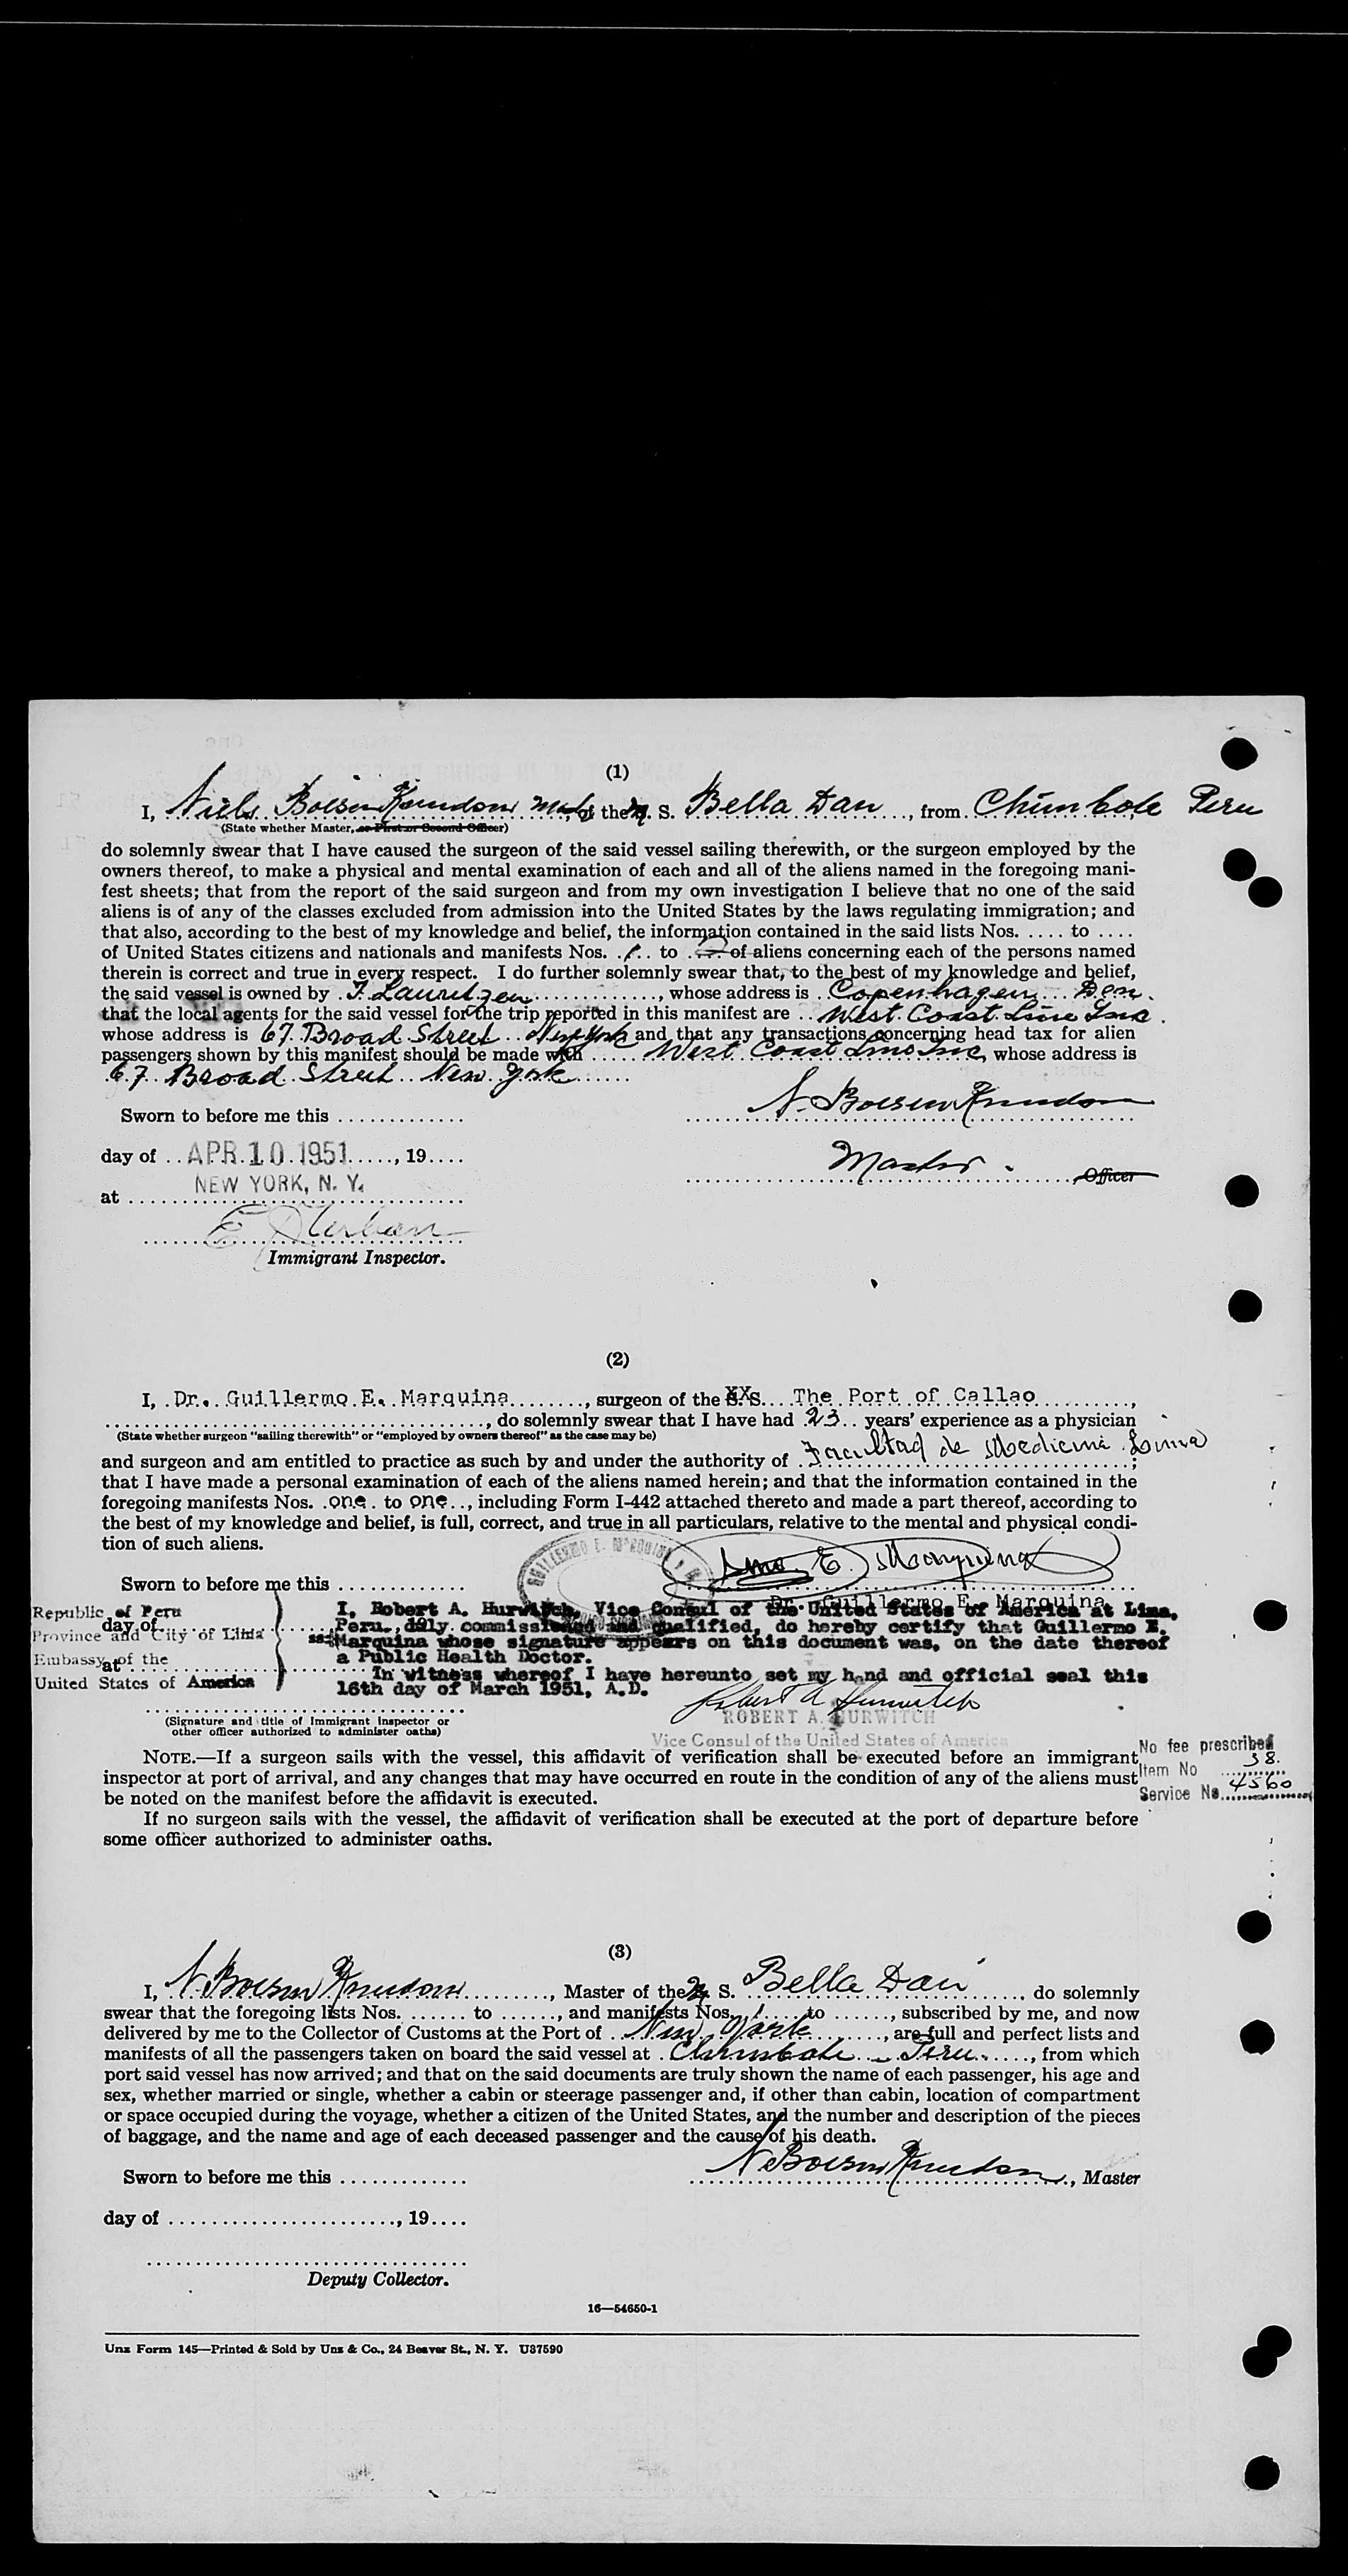 (1)
I, Niels Boesen Knudsen Master of the M. S. Bella Dan, from Chimbote Peru
(State whether Master, or First or Second Officer)
do solemnly swear that I have caused the surgeon of the said vessel sailing therewith, or the surgeon employed by the
owners thereof, to make a physical and mental examination of each and all of the aliens named in the foregoing mani-
fest sheets; that from the report of the said surgeon and from my own investigation I believe that no one of the said
aliens is of any of the classes excluded from admission into the United States by the laws regulating immigration; and
that also, according to the best of my knowledge and belief, the information contained in the said lists Nos. .... to ....
of United States citizens and nationals and manifests Nos. 1 to .... of aliens concerning each of the persons named
therein is correct and true in every respect. I do further solemnly swear that, to the best of my knowledge and belief,
the said vessel is owned by J. Lauritzen, whose address is Copenhagen Den.
that the local agents for the said vessel for the trip reported in this manifest are West Coast Line Inc.
whose address is 67 Broad Street New York and that any transactions concerning head tax for alien
passengers shown by this manifest should be made with West Coast Line Inc, whose address is
67 Broad Street New York
Sworn to before me this ............. N. Boesen Knudsen
day of APR 10 1951, 19....
Master. Officer
at NEW YORK, N. Y.
Immigrant Inspector.
(2)
I, Dr. Guillermo E. Marquina, surgeon of the S.S. XX The Port of Callao,
, do solemnly swear that I have had 23 years' experience as a physician
(State whether surgeon "sailing therewith" or "employed by owners thereof" as the case may be)
and surgeon and am entitled to practice as such by and under the authority of Facultad de Medicina Lima;
that I have made a personal examination of each of the aliens named herein; and that the information contained in the
foregoing manifests Nos. one to one, including Form I-442 attached thereto and made a part thereof, according to
the best of my knowledge and belief, is full, correct, and true in all particulars, relative to the mental and physical condi-
tion of such aliens.
GUILLERMO E. MARQUINA
Gmo. E. Marquina
Sworn to before me this .............
Dr. Guillermo E. Marquina
Republic of Peru
Province and City of Lima
Embassy of the
United States of America
ss:
day of
at
I, Robert A. Hurwitch, Vice Consul of the United States of America at Lima,
Peru, duly commissioned and qualified, do hereby certify that Guillermo E.
Marquina whose signature appears on this document was, on the date thereof
a Public Health Doctor.
In witness whereof I have hereunto set my hand and official seal this
16th day of March 1951, A.D.
Robert A Hurwitch
ROBERT A. HURWITCH
Vice Consul of the United States of America
(Signature and title of Immigrant Inspector or
other officer authorized to administer oaths)
No fee prescribed
Item No 38.
Service No. 4560
NOTE.—If a surgeon sails with the vessel, this affidavit of verification shall be executed before an immigrant
inspector at port of arrival, and any changes that may have occurred en route in the condition of any of the aliens must
be noted on the manifest before the affidavit is executed.
If no surgeon sails with the vessel, the affidavit of verification shall be executed at the port of departure before
some officer authorized to administer oaths.
(3)
I, N. Boesen Knudsen, Master of the M. S. Bella Dan, do solemnly
swear that the foregoing lists Nos. ...... to ......, and manifests Nos. 1 to ......, subscribed by me, and now
delivered by me to the Collector of Customs at the Port of New York, are full and perfect lists and
manifests of all the passengers taken on board the said vessel at Chimbote - Peru, from which
port said vessel has now arrived; and that on the said documents are truly shown the name of each passenger, his age and
sex, whether married or single, whether a cabin or steerage passenger and, if other than cabin, location of compartment
or space occupied during the voyage, whether a citizen of the United States, and the number and description of the pieces
of baggage, and the name and age of each deceased passenger and the cause of his death.
Sworn to before me this ............. N Boesen Knudsen, Master
day of ......................., 19....
Deputy Collector.
16—54650-1
Unz Form 145—Printed & Sold by Unz & Co., 24 Beaver St., N. Y. U37590